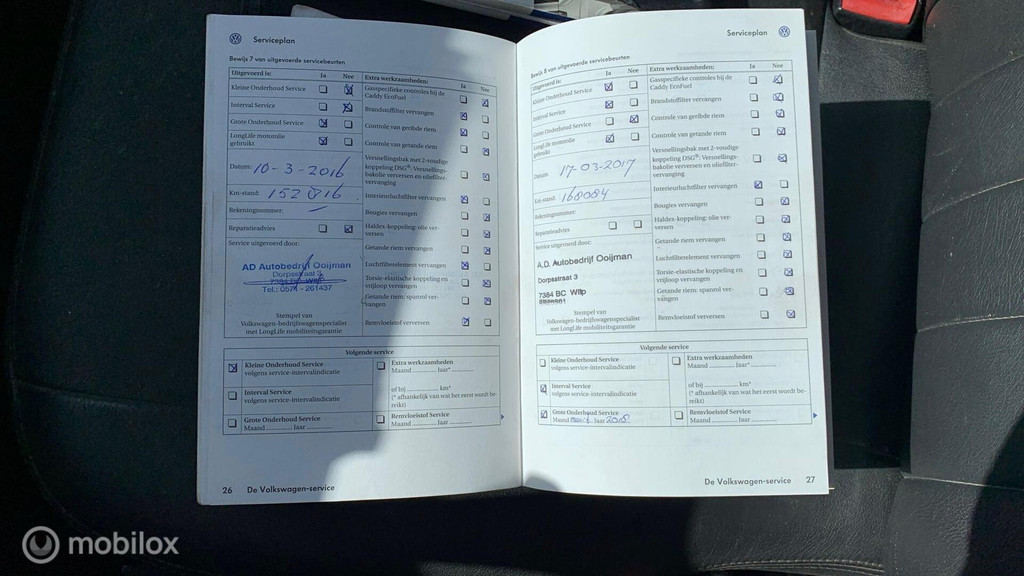 Serviceplan
Bewijs 7 van uitgevoerde servicebeurten
Uitgevoerd is: Ja Nee
Kleine Onderhoud Service
Interval Service
Grote Onderhoud Service
LongLife motorolie
gebruikt
Datum: 10-3-2016
Km-stand: 152 816
Rekeningnummer:
Reparatieadvies
Service uitgevoerd door:
AD Autobedrijf Ooijman
Dorpsstraat 3
7384 BC Wilp
Tel.: 0571 - 261437
Stempel van
Volkswagen-bedrijfswagenspecialist
met LongLife mobiliteitsgarantie
Extra werkzaamheden: Ja Nee
Gasspecifieke controles bij de
Caddy EcoFuel
Brandstoffilter vervangen
Controle van geribde riem
Controle van getande riem
Versnellingsbak met 2-voudige
koppeling DSG®: Versnellings-
bakolie verversen en oliefilter-
vervanging
Interieurluchtfilter vervangen
Bougies vervangen
Haldex-koppeling: olie ver-
versen
Getande riem vervangen
Luchtfilterelement vervangen
Torsie-elastische koppeling en
vrijloop vervangen
Getande riem: spanrol ver-
vangen
Remvloeistof verversen
Volgende service
Kleine Onderhoud Service
volgens service-intervalindicatie
Interval Service
volgens service-intervalindicatie
Grote Onderhoud Service
Maand Jaar
Extra werkzaamheden
Maand Jaar*
of bij km*
(* afhankelijk van wat het eerst wordt be-
reikt)
Remvloeistof Service
Maand Jaar
26 De Volkswagen-service
Serviceplan
Bewijs 8 van uitgevoerde servicebeurten
Uitgevoerd is: Ja Nee
Kleine Onderhoud Service
Interval Service
Grote Onderhoud Service
LongLife motorolie
gebruikt
Datum: 17-03-2017
Km-stand: 168084
Rekeningnummer:
Reparatieadvies
Service uitgevoerd door:
A.D. Autobedrijf Ooijman
Dorpsstraat 3
7384 BC Wilp
Stempel van
Volkswagen-bedrijfswagenspecialist
met LongLife mobiliteitsgarantie
Extra werkzaamheden: Ja Nee
Gasspecifieke controles bij de
Caddy EcoFuel
Brandstoffilter vervangen
Controle van geribde riem
Controle van getande riem
Versnellingsbak met 2-voudige
koppeling DSG®: Versnellings-
bakolie verversen en oliefilter-
vervanging
Interieurluchtfilter vervangen
Bougies vervangen
Haldex-koppeling: olie ver-
versen
Getande riem vervangen
Luchtfilterelement vervangen
Torsie-elastische koppeling en
vrijloop vervangen
Getande riem: spanrol ver-
vangen
Remvloeistof verversen
Volgende service
Kleine Onderhoud Service
volgens service-intervalindicatie
Interval Service
volgens service-intervalindicatie
Grote Onderhoud Service
Maand Jaar 2018
Extra werkzaamheden
Maand Jaar*
of bij km*
(* afhankelijk van wat het eerst wordt be-
reikt)
Remvloeistof Service
Maand Jaar
De Volkswagen-service 27
mobilox